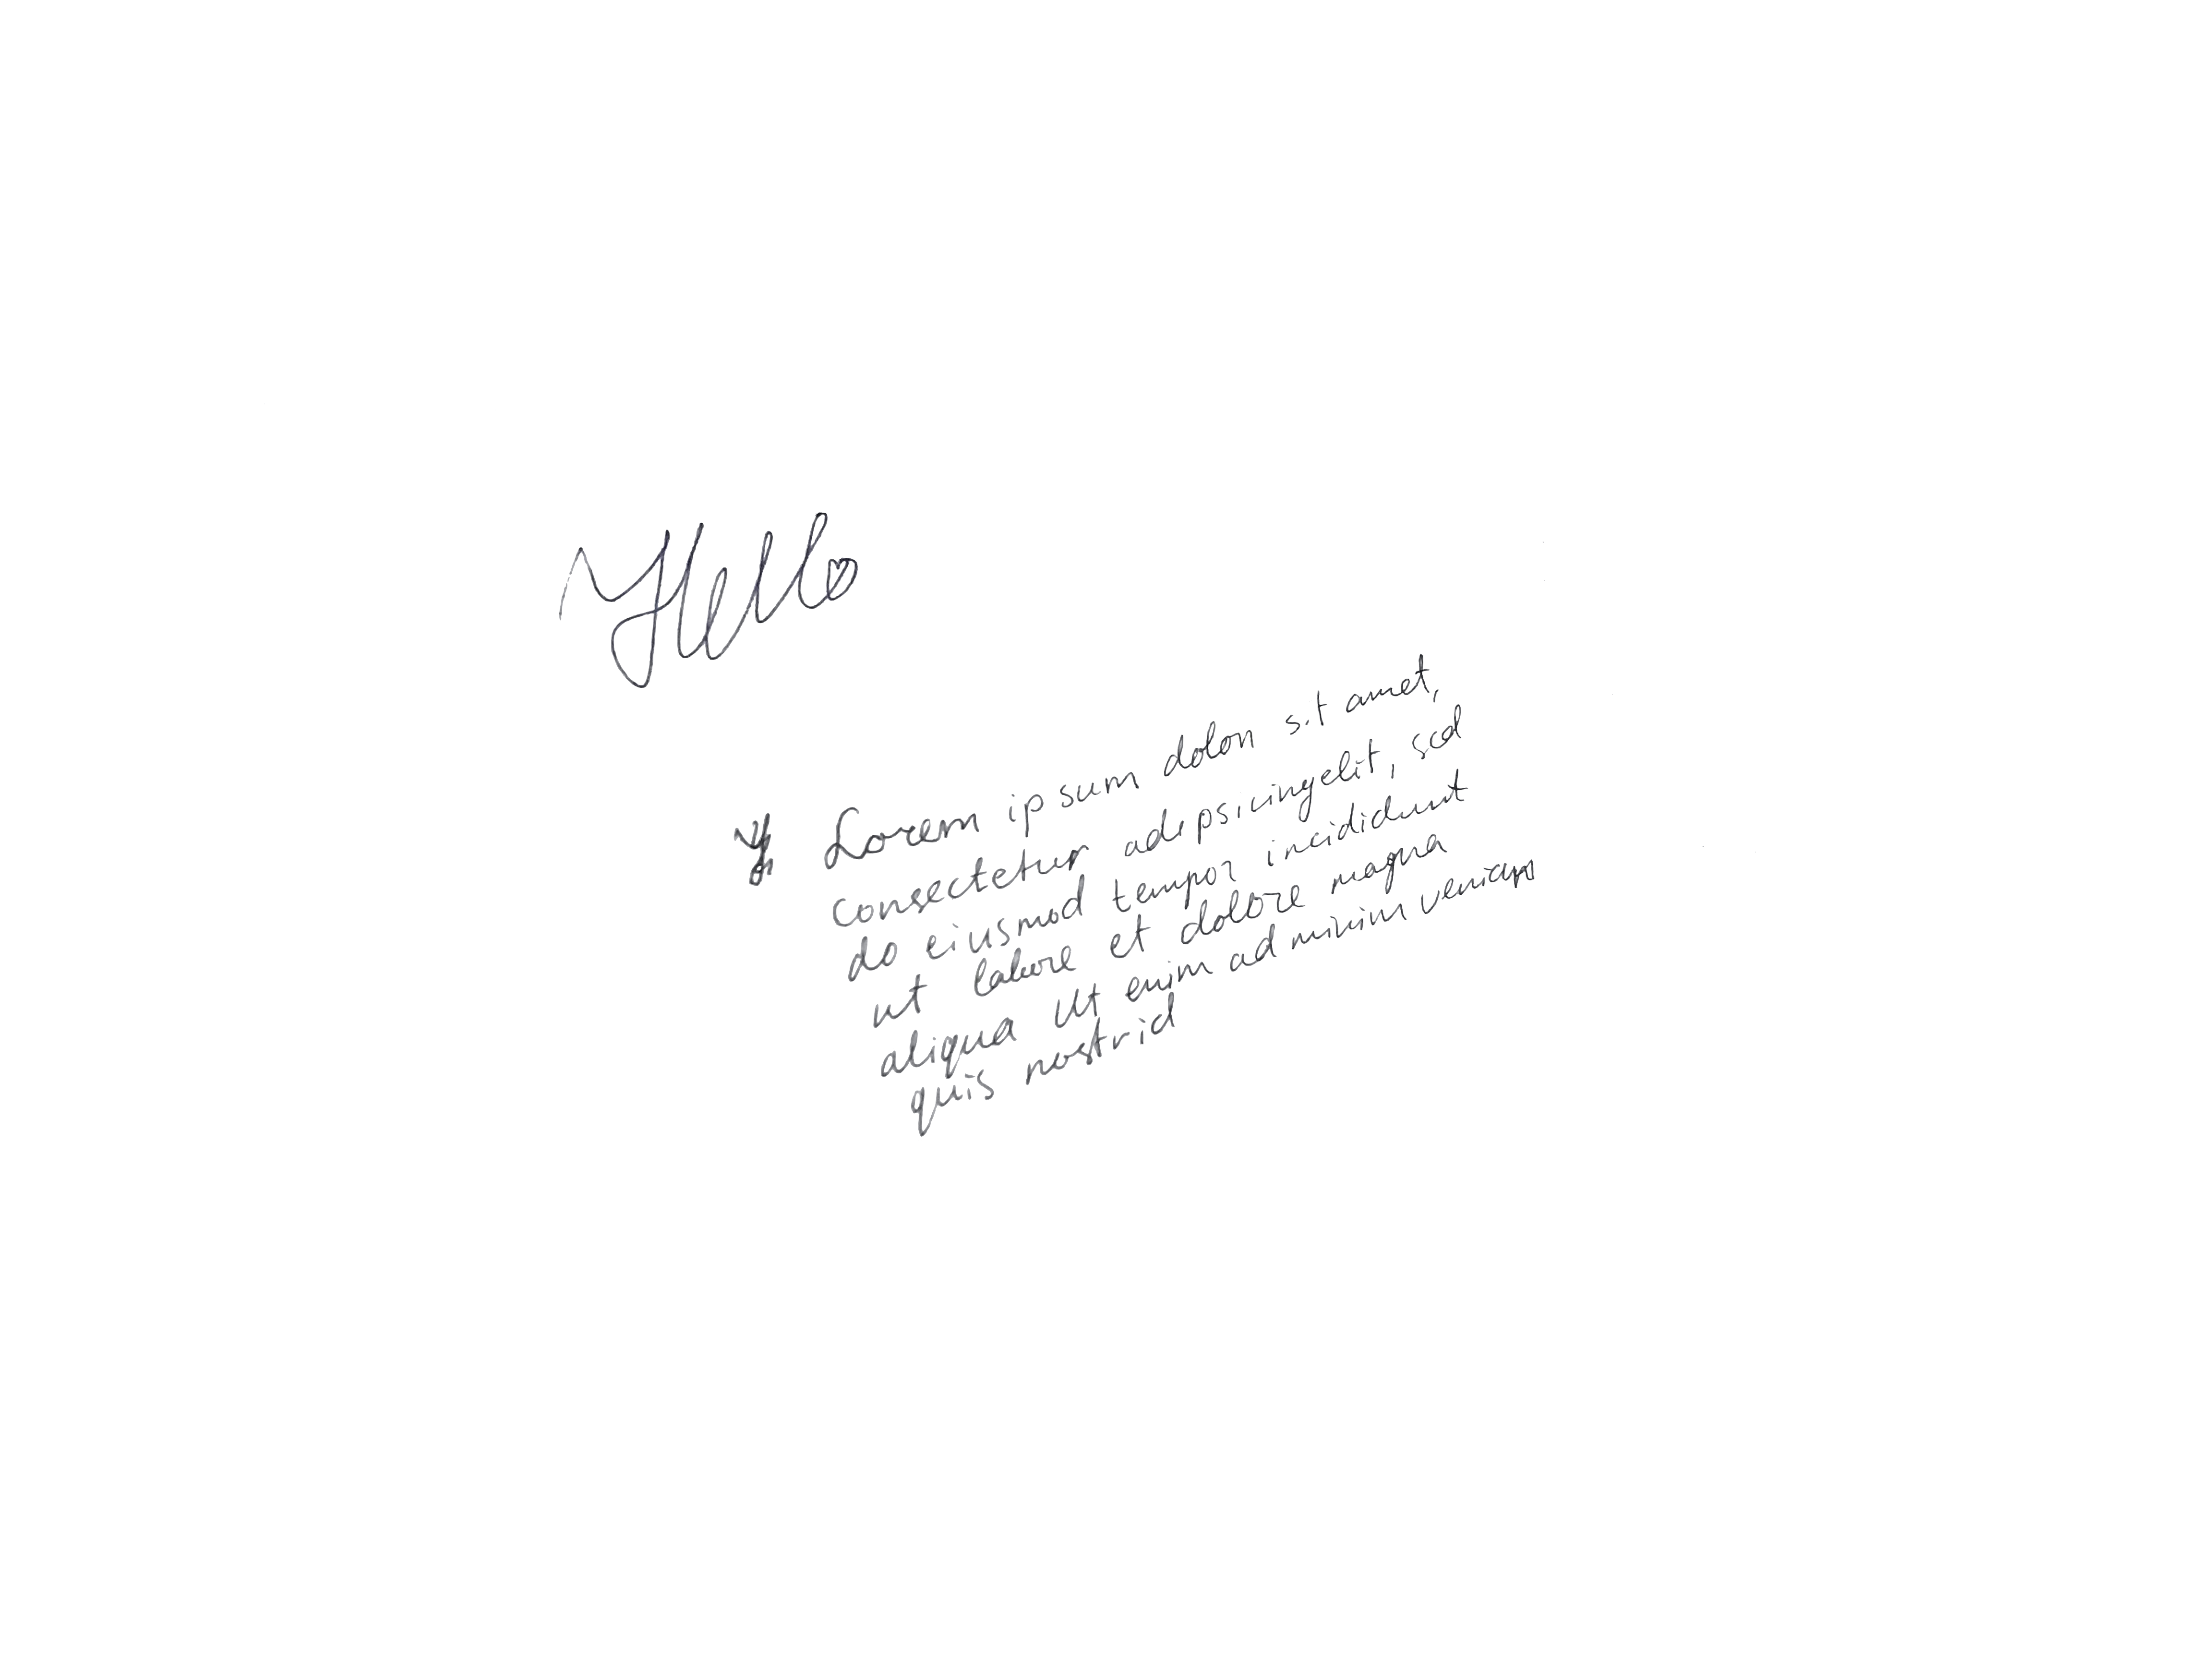 Hello
Lorem ipsum dolor sit amet,
consectetur adipsicingelit, sed
do eiusmod tempor incididunt
ut labore et dolore magna
aliqua Ut enim ad minim veniam
quis nostrid